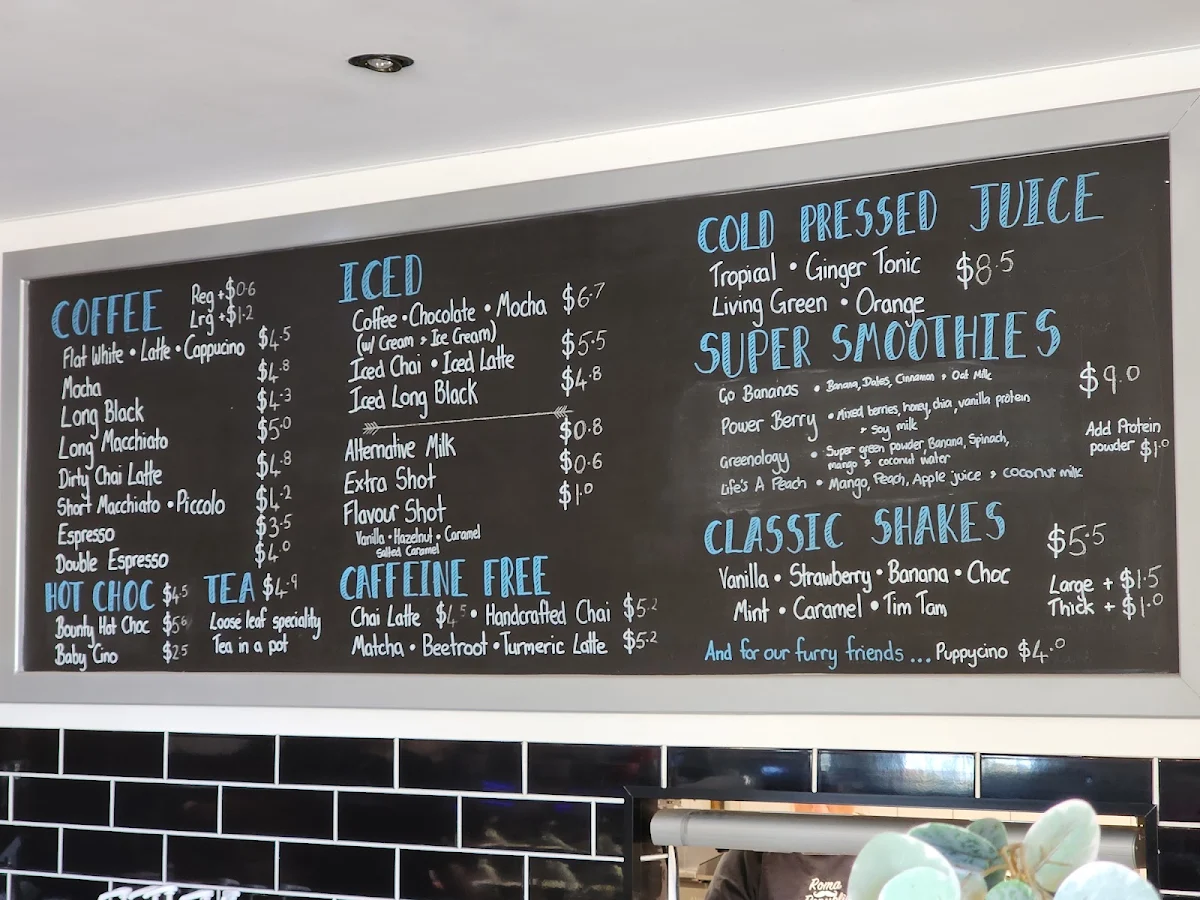 COFFEE Reg +$0.6
Lrg +$1.2
Flat White • Latte • Cappucino $4.5
Mocha $4.8
Long Black $4.3
Long Macchiato $5.0
Dirty Chai Latte $4.8
Short Macchiato • Piccolo $4.2
Espresso $3.5
Double Espresso $4.0
HOT CHOC $4.5
Bounty Hot Choc $5.6
Baby Cino $2.5
TEA $4.9
Loose leaf speciality
Tea in a pot
ICED
Coffee • Chocolate • Mocha $6.7
(w/ Cream + Ice Cream)
Iced Chai • Iced Latte $5.5
Iced Long Black $4.8
Alternative Milk $0.8
Extra Shot $0.6
Flavour Shot $1.0
Vanilla • Hazelnut • Caramel
Salted Caramel
CAFFEINE FREE
Chai Latte $4.5 • Handcrafted Chai $5.2
Matcha • Beetroot • Turmeric Latte $5.2
COLD PRESSED JUICE
Tropical • Ginger Tonic $8.5
Living Green • Orange
SUPER SMOOTHIES
Go Bananas • Banana, Dates, Cinnamon + Oat Milk $9.0
Power Berry • Mixed berries, honey, chia, vanilla protein
+ soy milk
Greenology • Super green powder Banana, Spinach,
mango + coconut water
Life's A Peach • Mango, Peach, Apple juice + coconut milk
Add Protein
powder $1.0
CLASSIC SHAKES $5.5
Vanilla • Strawberry • Banana • Choc
Mint • Caramel • Tim Tam
Large + $1.5
Thick + $1.0
And for our furry friends ... Puppycino $4.0
Roma